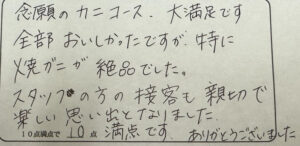 念願のカニコース、大満足です
全部おいしかったですが、特に
焼ガニが絶品でした。
スタッフの方の接客も親切で
楽しい思い出となりました。
10点満点で 10 点 満点です。ありがとうございました